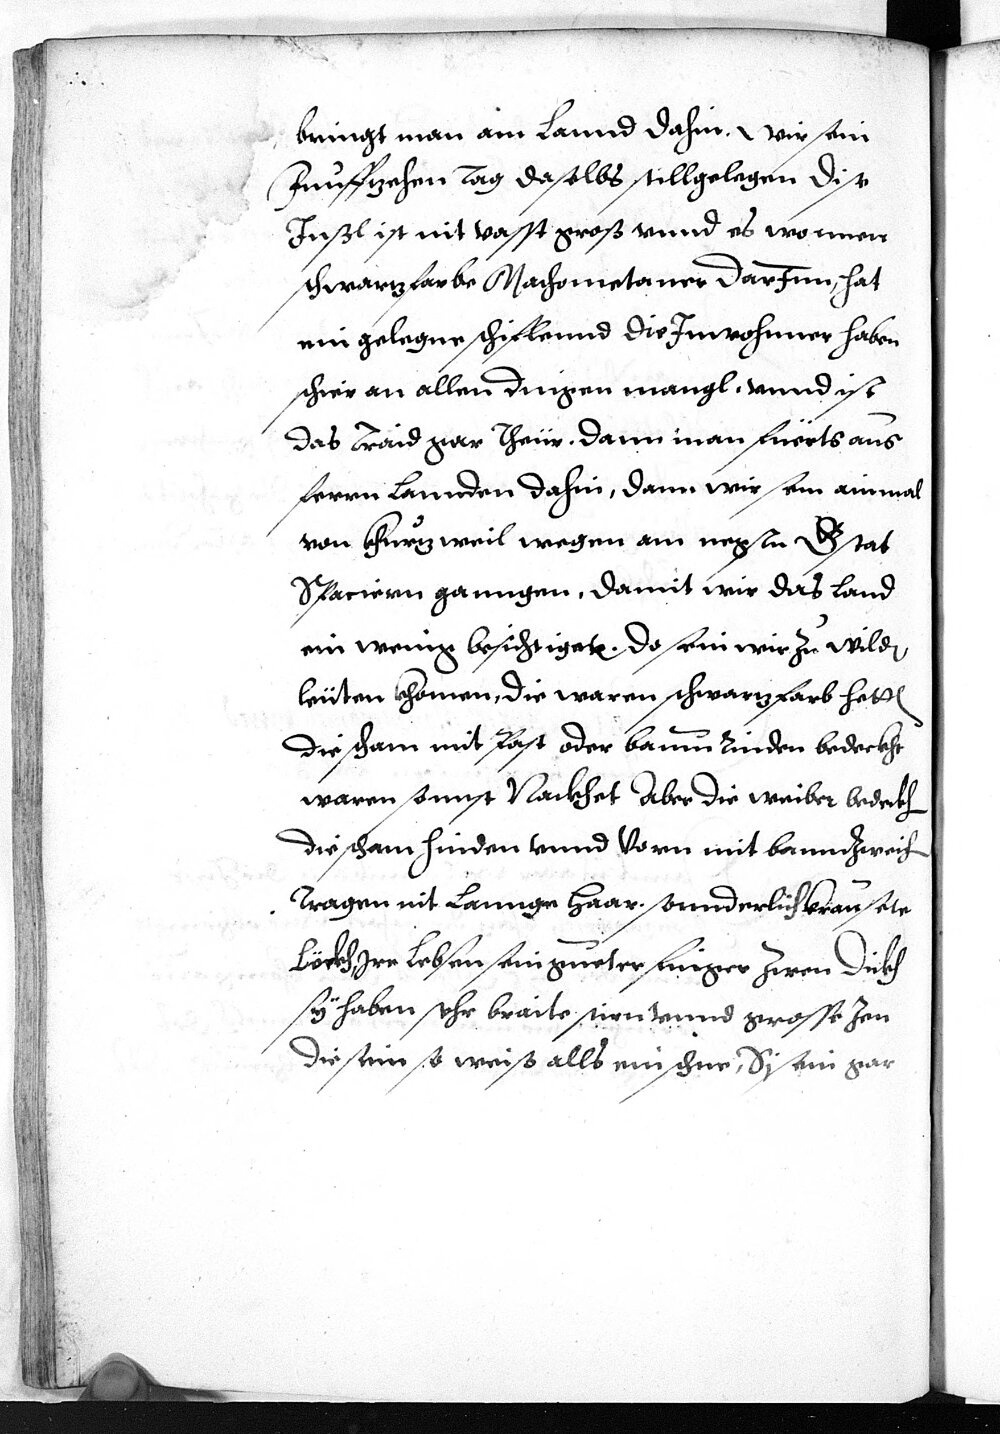 bringt man ain Lannd dahin. wir sein
Funffzehen Tag daselbs stillgelegen Die
Jnßl ist nit vasst groß vnnd es wonnen
schwartzfarbe Machometaner darJnn, hat
ein gelegne schifflennd die Jnwohnner haben
schier an allen dingen mangl. vnnd ist
das Traid gar Theür. dann man füerts aus
ferrn Lannden dahin, dann wir sein ainmal
von Khurtzweil wegen am negstn Gstat
Spaciern ganngen, damit wir das Land
ein wenig besichtigetn. do sein wir zu wilden
leüten khomen, die waren schwartzfarb hetten
die scham mit Past oder baum Rinden bedeckht
waren sonnst Nackhet Aber die weiber bedeckhen
die scham hinden vnnd Vorn mit baumzweig
Tragen nit Lannge Haar. sonnderlich krausete
Löckh, Jre Lebsen sein gueter finger zwen dickh
sy haben sehr braite stirn vnnd grosse Zen
die sein so weiß alls ein schne, Sy sein gar